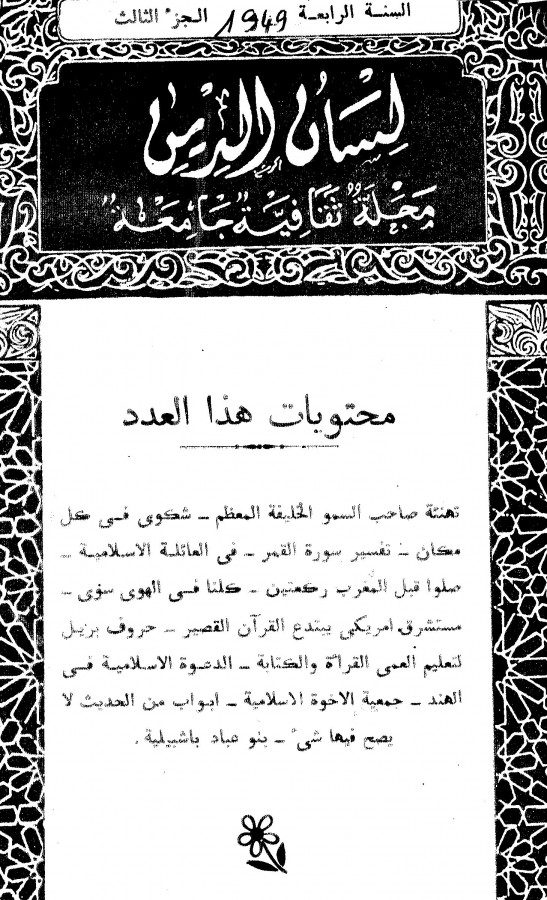 السنة الرابعة 1949 الجزء الثالث
لِسَانُ الدِّين
مَجَلَّةٌ ثَقَافِيَّةٌ جَامِعَةٌ
محتويات هذا العدد
تهنئة صاحب السمو الخليفة المعظم – شكوى فى كل
مكان – تفسير سورة القمر – فى العائلة الاسلامية –
صلوا قبل المغرب ركعتين – كلنا فى الهوى سوى –
مستشرق امريكى يبتدع القرآن القصير – حروف بريل
لتعليم العمى القراءة والكتابة – الدعوة الاسلامية فى
الهند – جمعية الاخوة الاسلامية – ابواب من الحديث لا
يصح فيها شىء – بنو عباد باشبيلية .